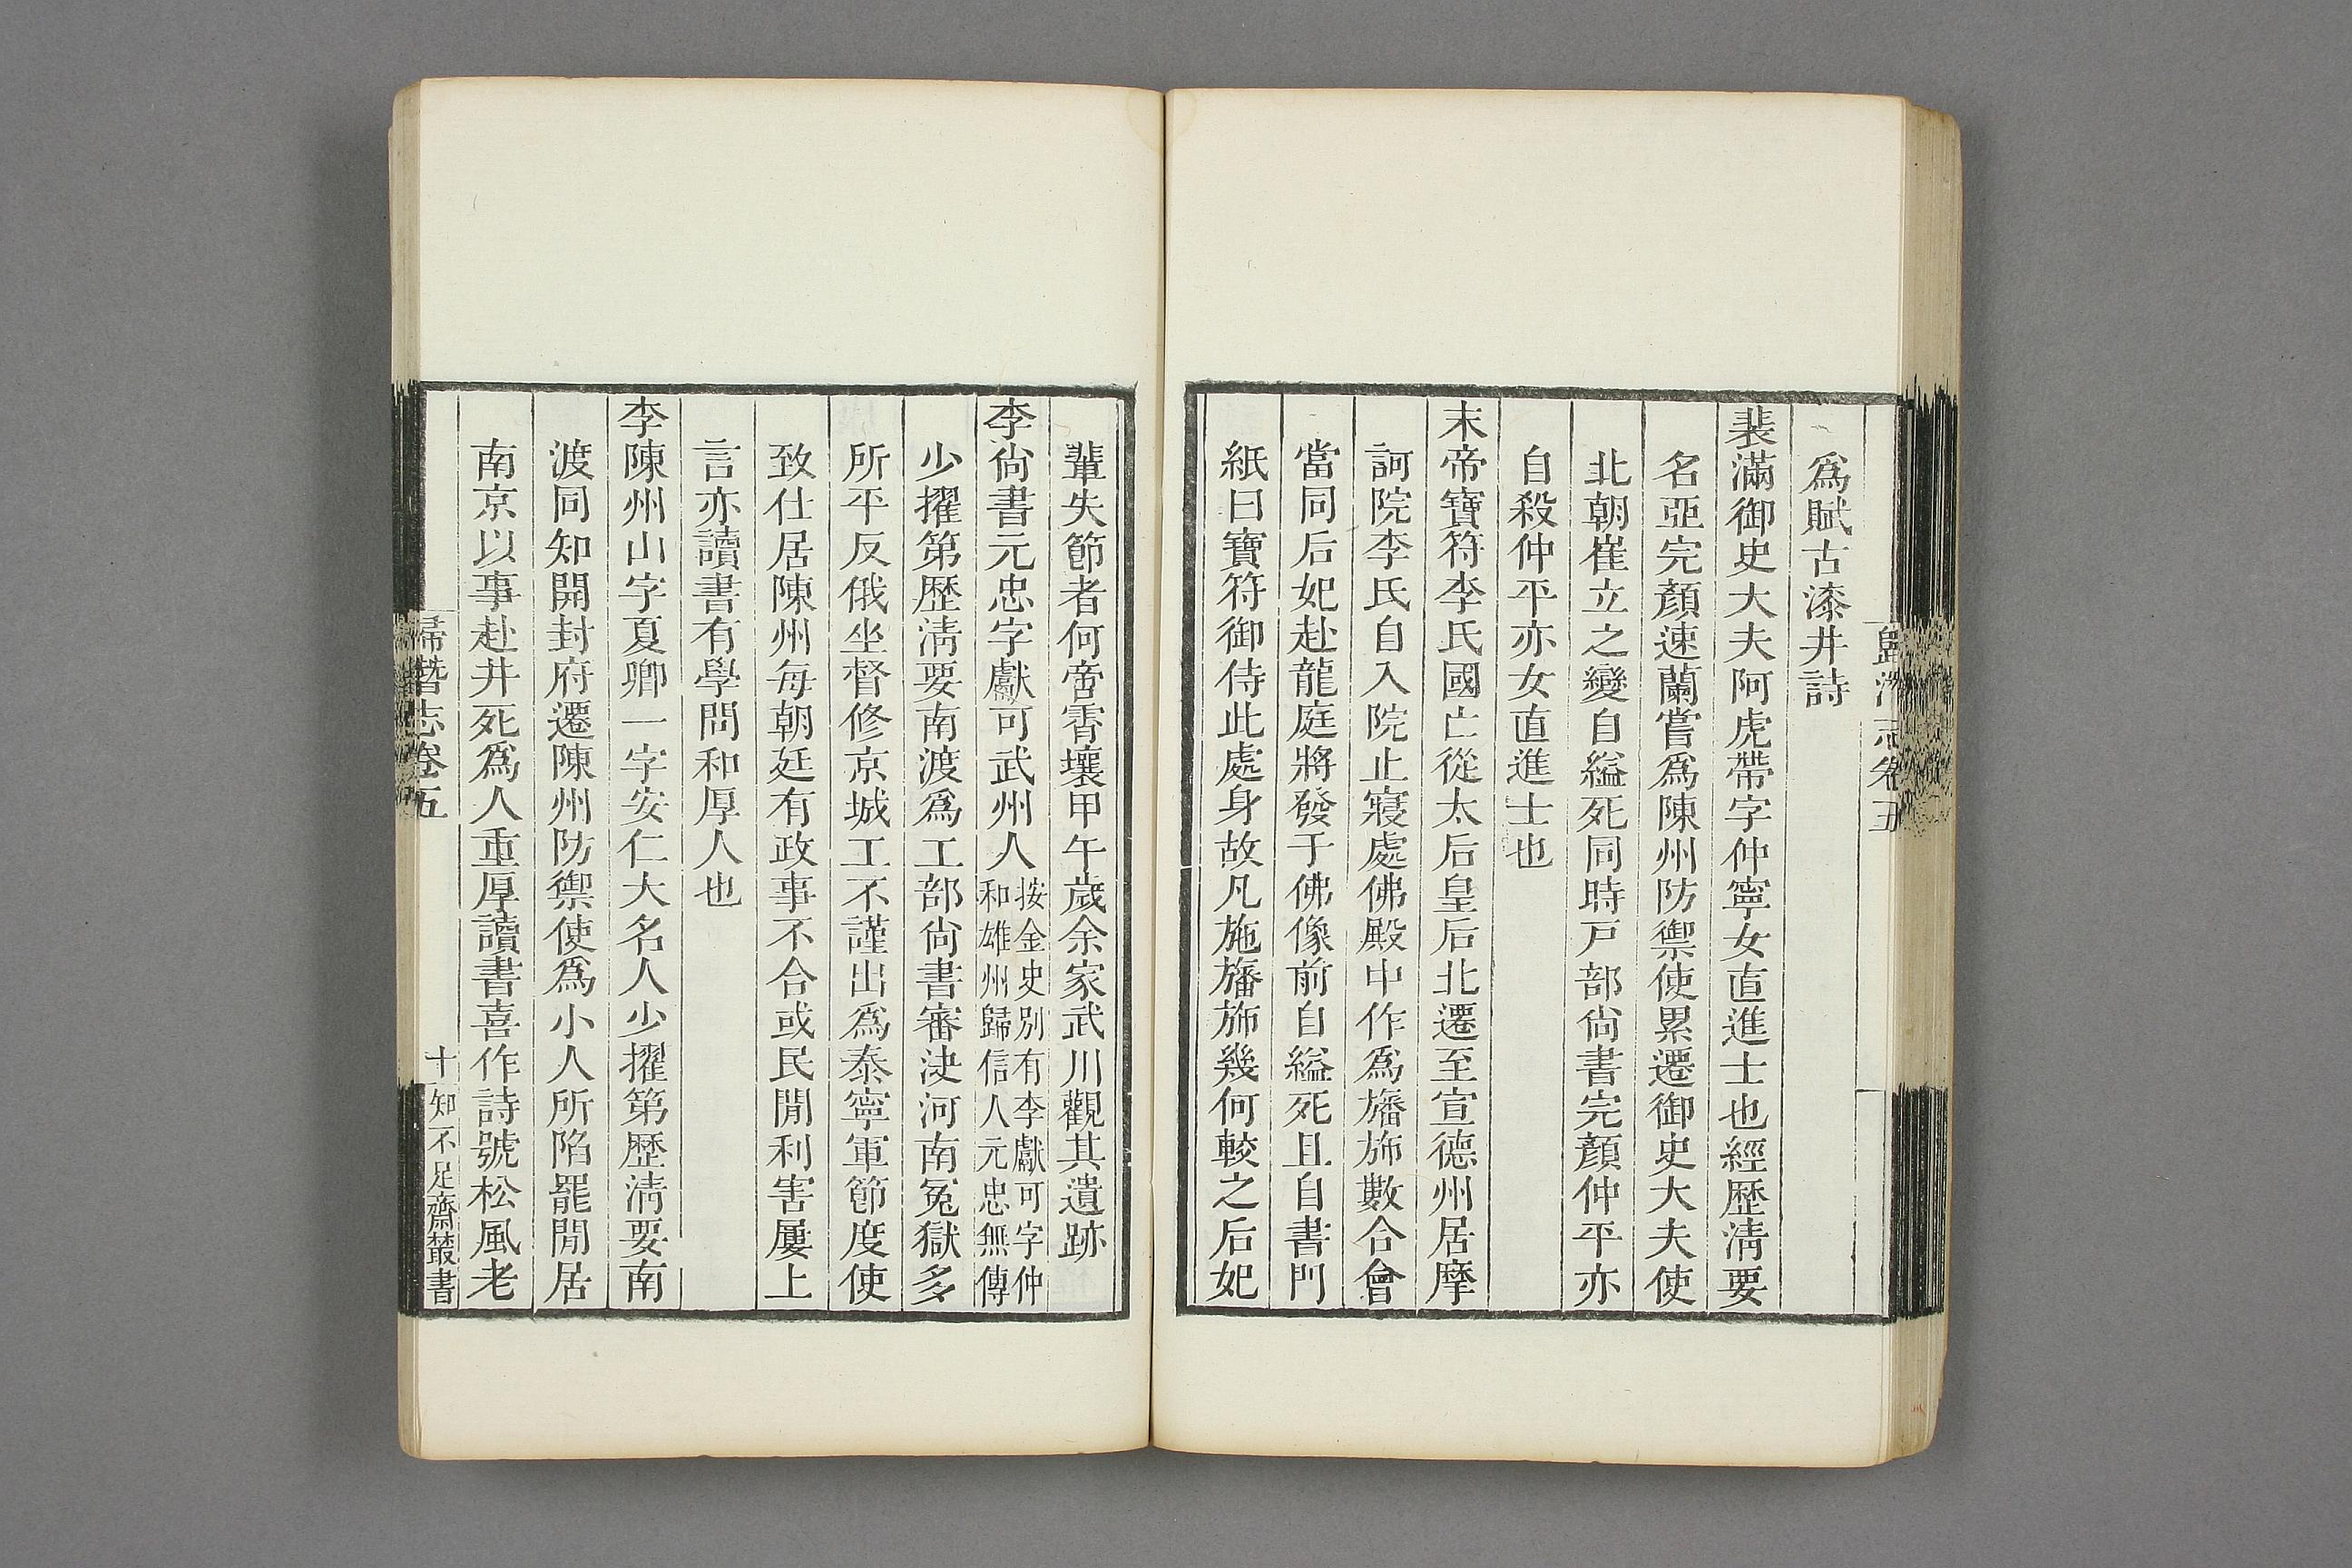 歸潛志卷五
爲賦古漆井詩
裴滿御史大夫阿虎帶字仲寧女直進士也經歷淸要
名亞完顏速蘭嘗爲陳州防禦使累遷御史大夫使
北朝崔立之變自縊死同時戸部尙書完顏仲平亦
自殺仲平亦女直進士也
末帝寶符李氏國亡從太后皇后北遷至宣德州居摩
訶院李氏自入院止寢處佛殿中作爲旛斾數合會
當同后妃赴龍庭將發于佛像前自縊死且自書門
紙曰寶符御侍此處身故凡施旛斾幾何較之后妃
輩失節者何啻霄壤甲午歲余家武川觀其遺跡
李尙書元忠字獻可武州人按金史別有李獻可字仲
和雄州歸信人元忠無傳
少擢第歷淸要南渡爲工部尙書審決河南冤獄多
所平反俄坐督修京城工不謹出爲泰寧軍節度使
致仕居陳州每朝廷有政事不合或民閒利害屢上
言亦讀書有學問和厚人也
李陳州山字夏卿一字安仁大名人少擢第歷淸要南
渡同知開封府遷陳州防禦使爲小人所陷罷閒居
南京以事赴井死爲人重厚讀書喜作詩號松風老
歸潛志卷五
十
知不足齋叢書